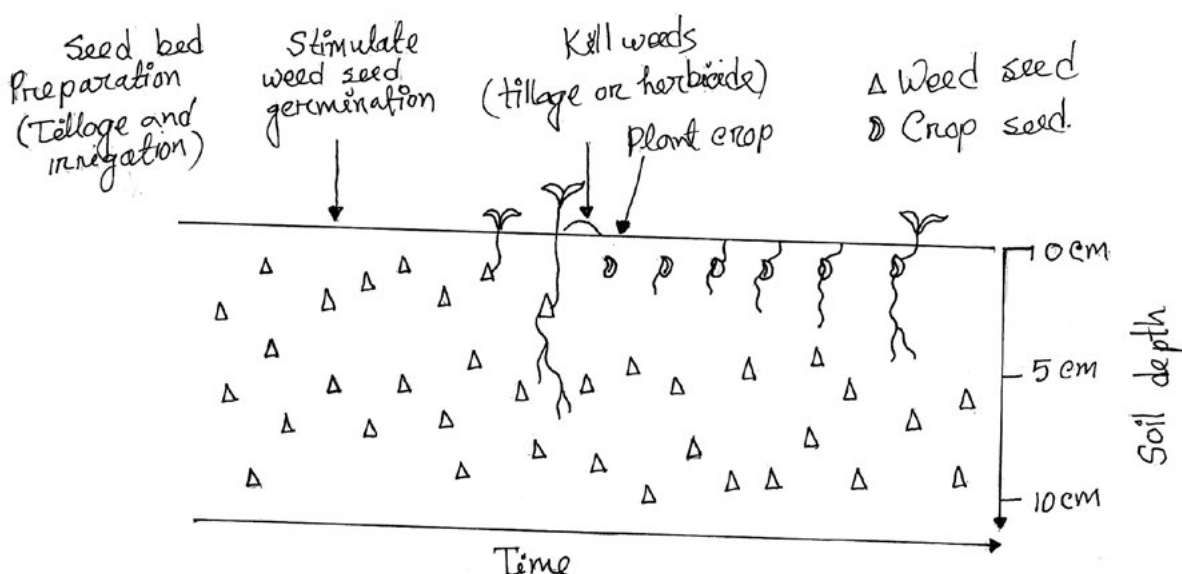 Seed bed
Preparation
(Tillage and
irrigation)
Stimulate
weed seed
germination
Kill weeds
(tillage or herbicide)
Plant crop
Weed seed
Crop seed.
0 cm
5 cm
10 cm
Soil depth
Time